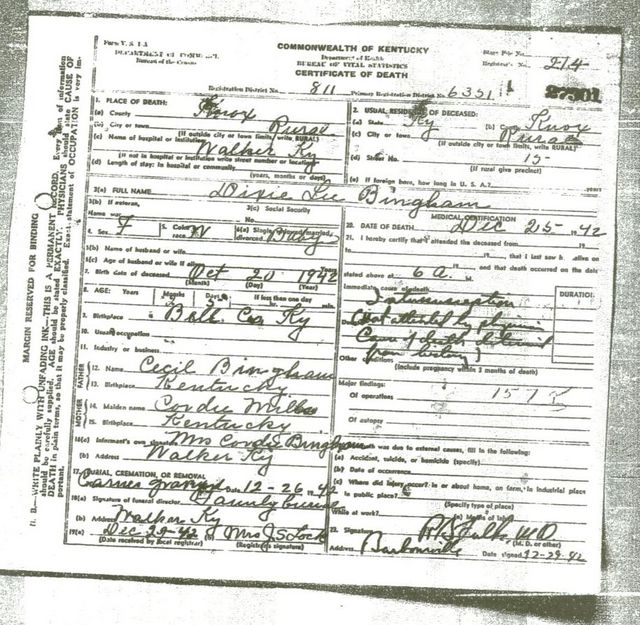 Form V. S. 1-A
DEPARTMENT OF COMMERCE
Bureau of the Census
COMMONWEALTH OF KENTUCKY
Department of Health
BUREAU OF VITAL STATISTICS
CERTIFICATE OF DEATH
State File No.
Registrar's No. 214
Registration District No. 811 Primary Registration District No. 6351
27301
1. PLACE OF DEATH:
(a) County Knox
(b) City or town Rural
(If outside city or town limits, write RURAL)
(c) Name of hospital or institution Walker Ky
(If not in hospital or institution write street number or location)
(d) Length of stay: In hospital or community
(years, months or days)
2. USUAL RESIDENCE OF DECEASED:
(a) State Ky (b) Knox
(c) City or town Rural
(If outside city or town limits, write RURAL)
(d) Street No. 15
(If rural give precinct)
(e) If foreign born, how long in U. S. A.? years
3(a) FULL NAME Dixie Lee Bingham
3(b) If veteran,
Name war
3(c) Social Security
No.
4. Sex F 5. Color or race W 6(a) Single, married, divorced Baby
6(b) Name of husband or wife
6(c) Age of husband or wife if alive Years
7. Birth date of deceased Oct 20 1942
(Month) (Day) (Year)
8. AGE: Years Months Days If less than one day
hr. min.
9. Birthplace Bell Co Ky
10. Usual occupation
11. Industry or business
FATHER
12. Name Cecil Bingham
13. Birthplace Kentucky
MOTHER
14. Maiden name Cordie Mills
15. Birthplace Kentucky
16(a) Informant's own signature Mrs Cordie Bingham
(b) Address Walker Ky
17. BURIAL, CREMATION, OR REMOVAL
Date 12-26-42
18(a) Signature of funeral director Family burial
(b) Address Walker Ky
19(a) Dec 28-42 (b) Mrs J S Lock
(Date received by local registrar) (Registrar's signature)
MEDICAL CERTIFICATION
20. DATE OF DEATH Dec 25- , 42
21. I hereby certify that I attended the deceased from , 19
to , 19 , that I last saw h alive on
, 19 , and that death occurred on the date
stated above at 6 a. M.
Immediate cause of death
Intussusception
DURATION
(Not attended by physician
Cause of death determined
from history)
Other conditions
(Include pregnancy within 3 months of death)
Major findings:
Of operations
Of autopsy
22. If death was due to external causes, fill in the following:
(a) Accident, suicide, or homicide (specify)
(b) Date of occurrence
(c) Where did injury occur? in or about home, on farm, in industrial place
in public place?
(Specify type of place)
While at work? (e) Means of injury
23. Signature M.D.
(M. D. or other)
Address Barbourville Date signed 12-29-42
MARGIN RESERVED FOR BINDING
N. B.—WRITE PLAINLY WITH UNFADING INK—THIS IS A PERMANENT RECORD. Every item of information
should be carefully supplied. AGE should be stated EXACTLY. PHYSICIANS should state CAUSE OF
DEATH in plain terms, so that it may be properly classified. Exact statement of OCCUPATION is very im-
portant.